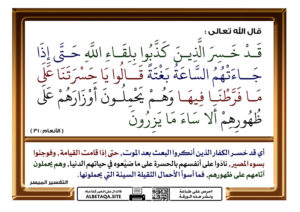 قال الله تعالى :
قَدْ خَسِرَ الَّذِينَ كَذَّبُوا بِلِقَاءِ اللَّهِ حَتَّى إِذَا
جَاءَتْهُمُ السَّاعَةُ بَغْتَةً قَالُوا يَا حَسْرَتَنَا عَلَى
مَا فَرَّطْنَا فِيهَا وَهُمْ يَحْمِلُونَ أَوْزَارَهُمْ عَلَى
ظُهُورِهِمْ أَلَا سَاءَ مَا يَزِرُونَ
( الأنعام : ٣١ )
أي قد خسر الكفار الذين أنكروا البعث بعد الموت, حتى إذا قامت القيامة, وفوجئوا
بسوء المصير, نادَوا على أنفسهم بالحسرة على ما ضيَّعوه في حياتهم الدنيا, وهم يحملون
آثامهم على ظهورهم, فما أسوأ الأحمال الثقيلة السيئة التي يحملونها.
التفسير الميسر
ALBETAQA.SITE